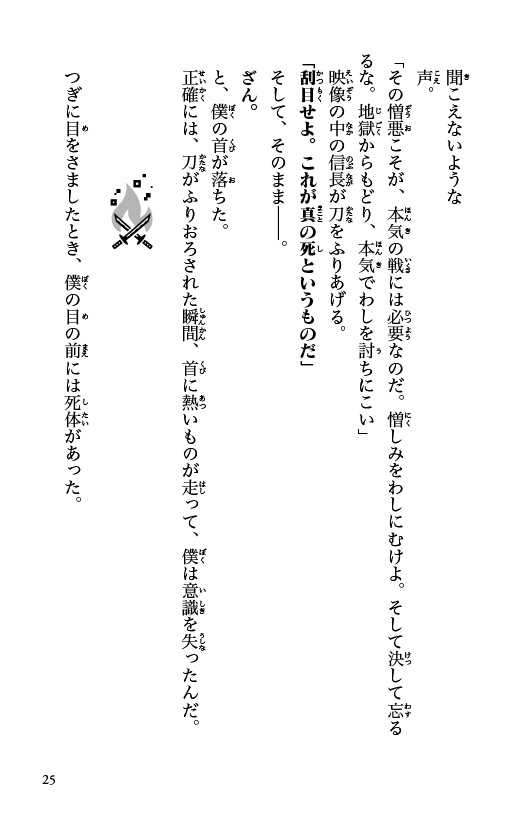 聞こえないような
声。
「その憎悪こそが、本気の戦には必要なのだ。憎しみをわしにむけよ。そして決して忘る
るな。地獄からもどり、本気でわしを討ちにこい」
映像の中の信長が刀をふりあげる。
「刮目せよ。これが真の死というものだ」
そして、そのまま――。
ざん。
と、僕の首が落ちた。
正確には、刀がふりおろされた瞬間、首に熱いものが走って、僕は意識を失ったんだ。
つぎに目をさましたとき、僕の目の前には死体があった。
25